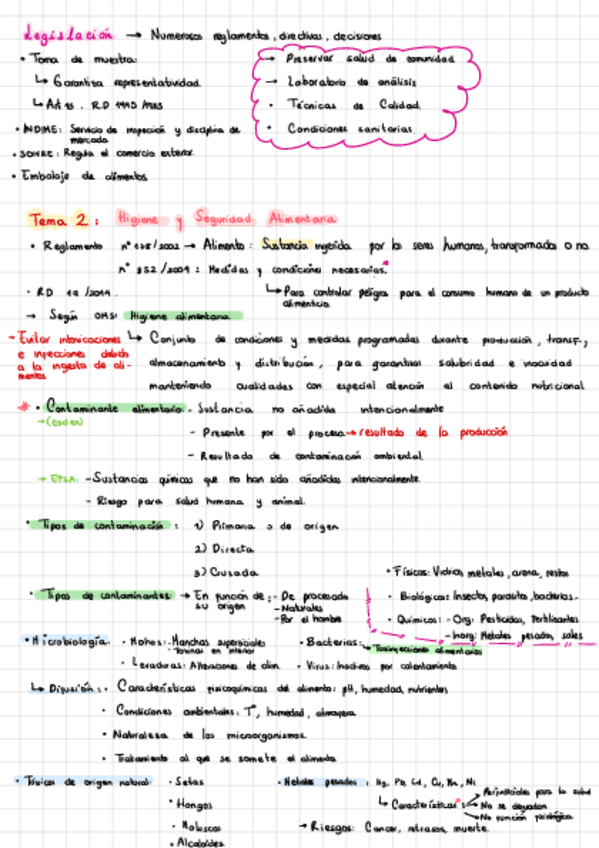 Legislación → Numerosos reglamentos, directivas, decisiones
• Toma de muestra:
↳ Garantiza representatividad
↳ Art 15. R.D 1945
→ Preservar salud de comunidad
→ Laboratorio de análisis
• Técnicas de Calidad
• Condiciones sanitarias
• INDIME: Servicio de inspección y disciplina de mercado
• SOIVRE: Regula el comercio exterior
• Embalaje de alimentos
Tema 2: Higiene y Seguridad Alimentaria
• Reglamento nº 178/2002 → Alimento: Sustancia ingerida por los seres humanos, transformada o no
nº 852/2004: Medidas y condiciones necesarias.
• RD
↳ Para controlar peligros para el consumo humano de un producto alimenticio
→ Según OMS: Higiene alimentaria
- Evitar intoxicaciones e infecciones debido a la ingesta de alimentos
↳ Conjunto de condiciones y medidas programadas durante producción, transf.,
almacenamiento y distribución, para garantizar salubridad e inocuidad
manteniendo cualidades con especial atención al contenido nutricional
* • Contaminante alimentario - Sustancia no añadida intencionalmente
→ (codex)
- Presente por el proceso → resultado de la producción
- Resultado de contaminación ambiental
→ EFSA: - Sustancias químicas que no han sido añadidas intencionalmente.
- Riesgo para salud humana y animal.
• Tipos de contaminación: 1) Primaria o de origen
2) Directa
3) Cruzada
• Tipos de contaminantes: → En función de su origen: - De procesado
- Naturales
- Por el hombre
• Físicos: Vidrios, metales, arena, restos
• Biológicos: Insectos, parásitos, bacterias..
• Químicos: - Org: Pesticidas, Fertilizantes
- Inorg: Metales pesados, sales
• Microbiología. • Mohos: Manchas superficiales
• Levaduras: Alteraciones de alim.
• Bacterias: ↳ Toxiinfecciones alimentarias
• Virus: Inactivos por calentamiento
↳ Difusión: • Características fisicoquímicas del alimento: pH, humedad, nutrientes
• Condiciones ambientales: Tª, humedad, atmósfera
• Naturaleza de los microorganismos
• Tratamiento al que se somete el alimento
• Tóxicos de origen natural: • Setas
• Hongos
• Moluscos
• Alcaloides
• Metales pesados: Hg, Pb, Cd, Cu, Ni
↳ Características: → Perjudiciales para la salud
→ No se degradan
→ No función fisiológica
→ Riesgos: Cancer, retrasos, muerte.